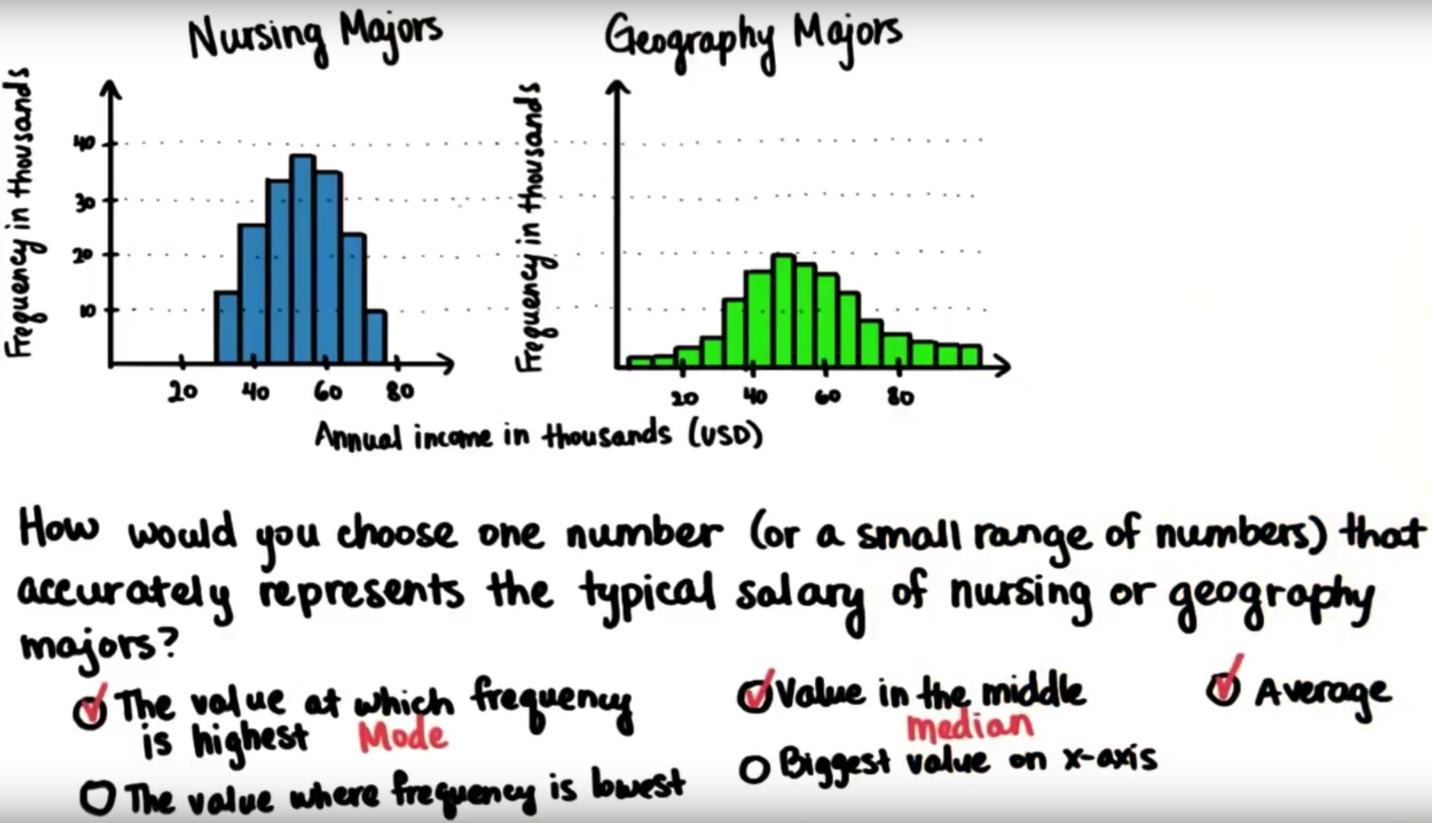 Nursing Majors
Frequency in thousands
40
30
20
10
20 40 60 80
Geography Majors
Frequency in thousands
20 40 60 80
Annual income in thousands (USD)
How would you choose one number (or a small range of numbers) that
accurately represents the typical salary of nursing or geography
majors?
The value at which frequency
is highest Mode
The value where frequency is lowest
Value in the middle
median
Biggest value on x-axis
Average